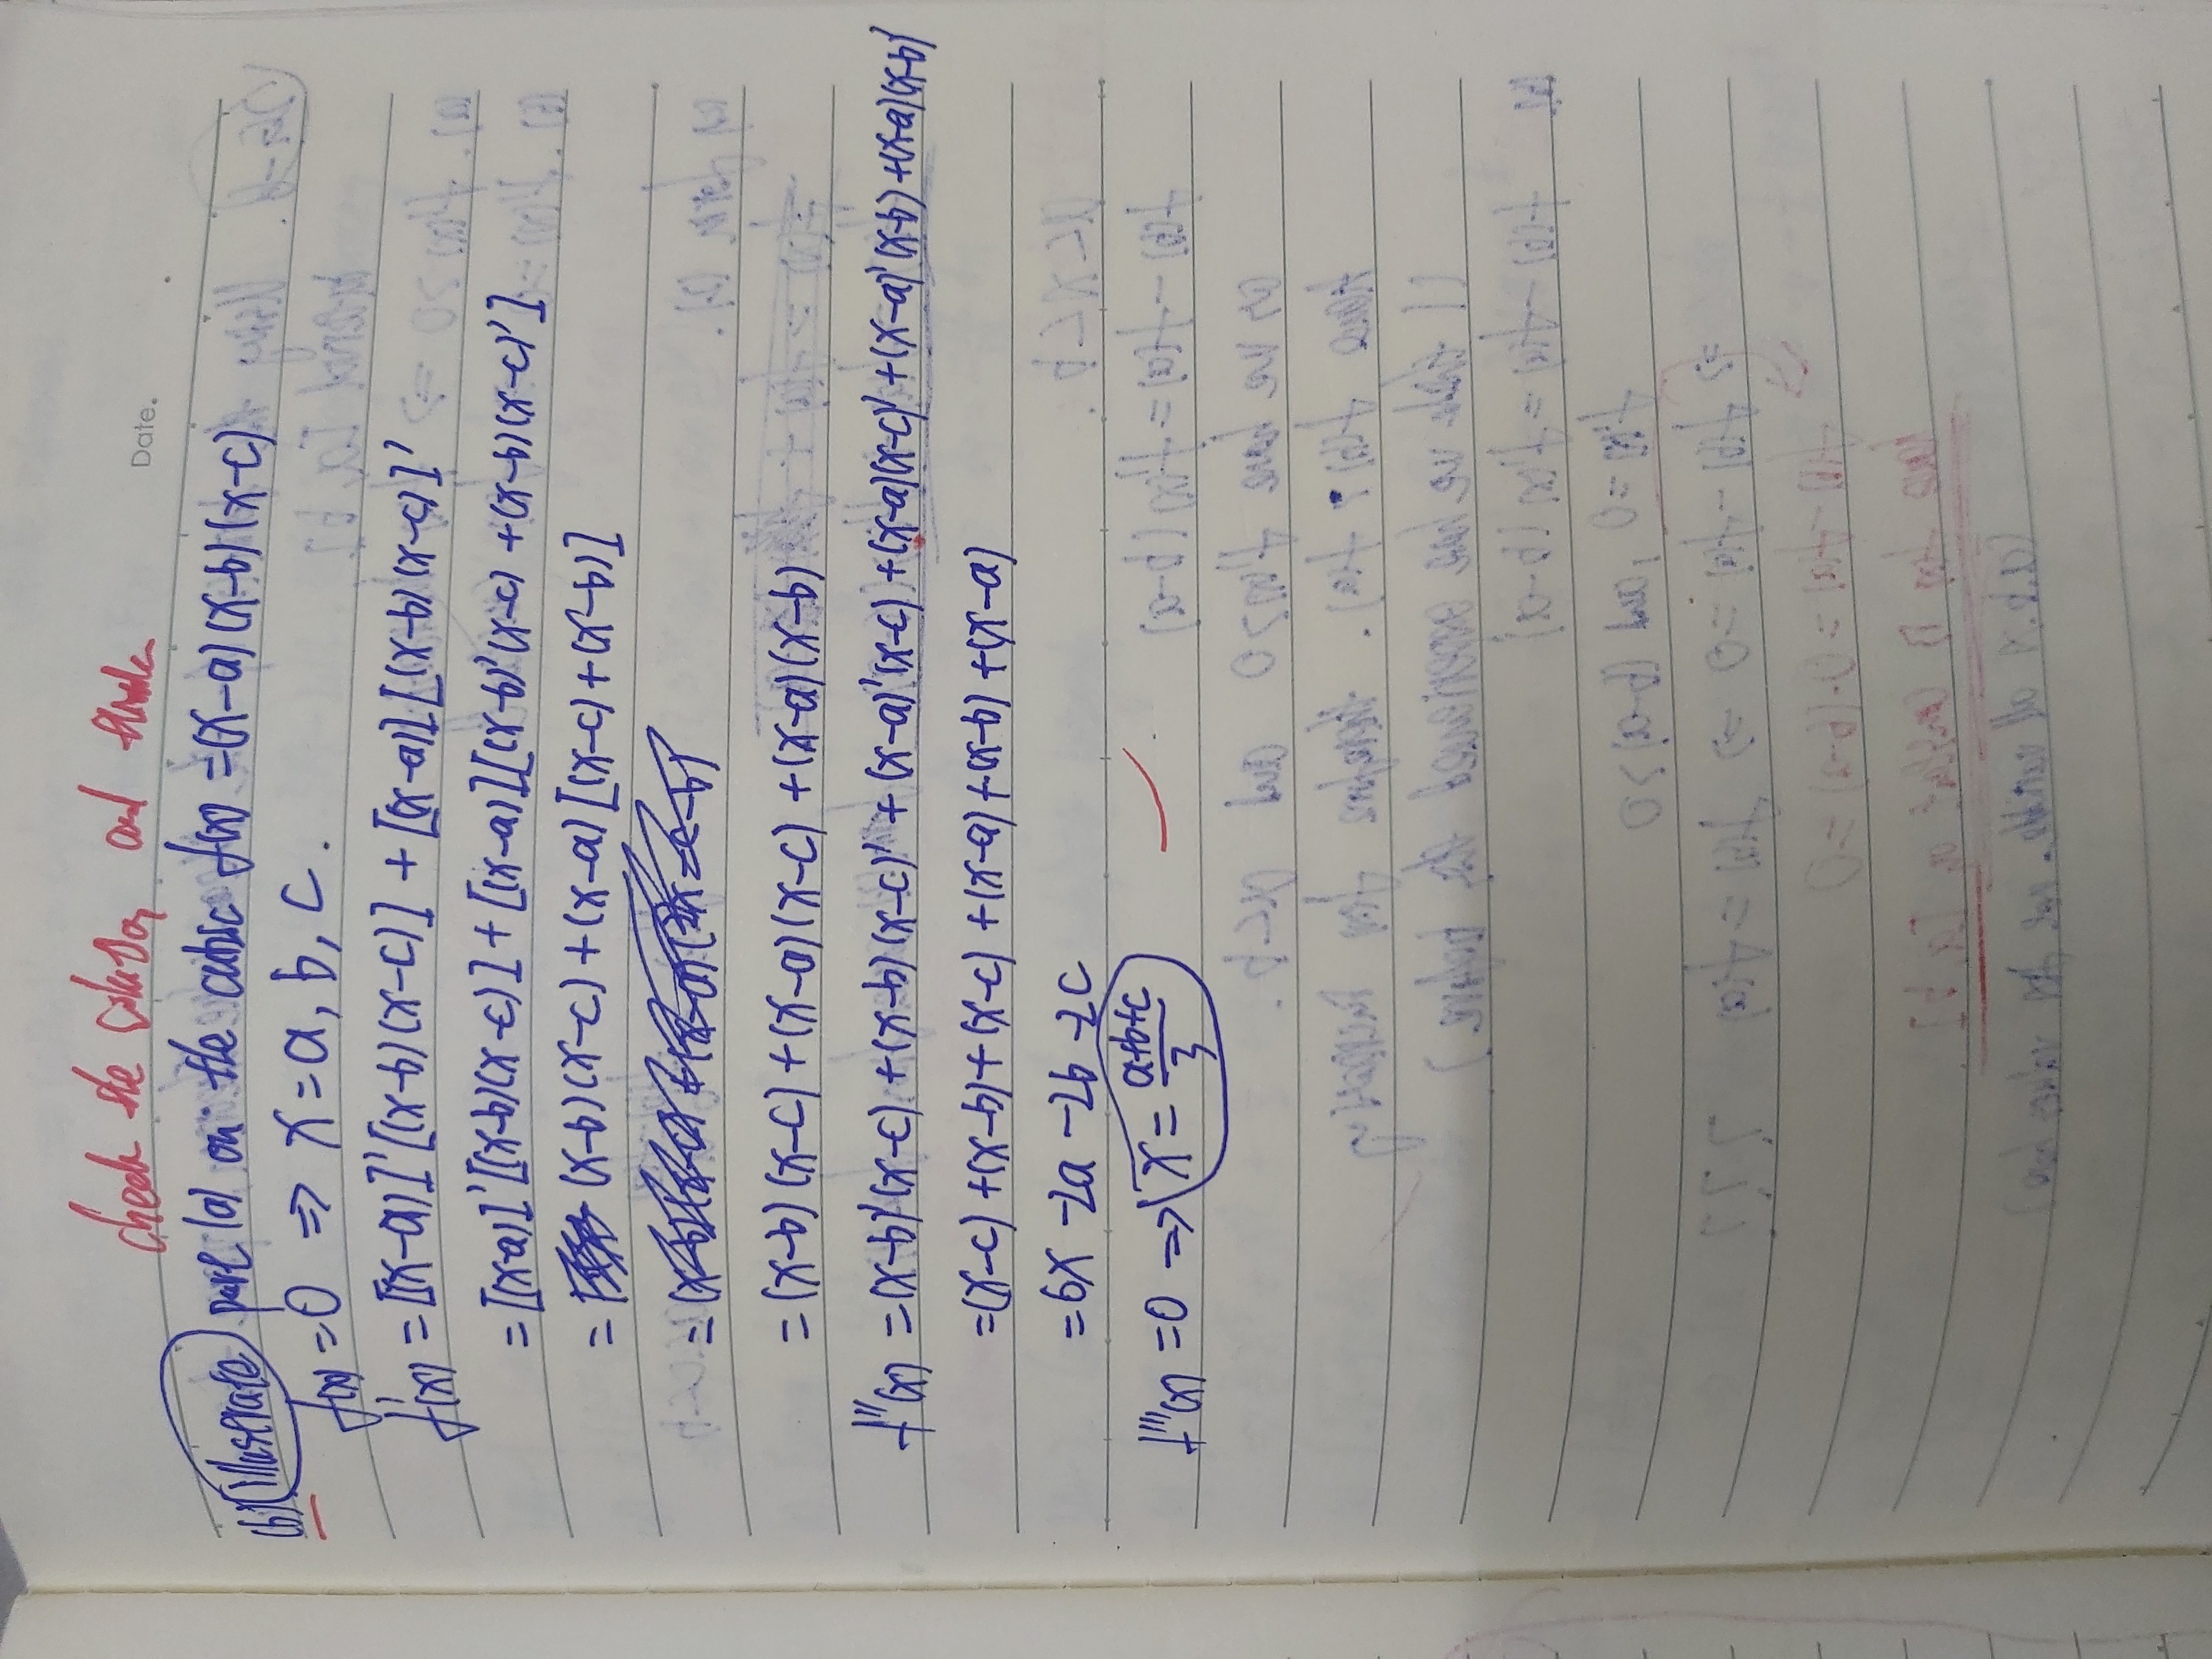 check the solution and think
Date.
(b) illustrate part (a) on the cubic f(x) = (x-a)(x-b)(x-c)
f(x) = 0 ⇒ x = a, b, c.
f'(x) = [(x-a)]'[(x-b)(x-c)] + [(x-a)][(x-b)(x-c)]'
= [(x-a)]'[(x-b)(x-c)] + [(x-a)][(x-b)'(x-c) + (x-b)(x-c)']
= (x-b)(x-c) + (x-a)[(x-c)+(x-b)]
=
= (x-b)(x-c) + (x-a)(x-c) + (x-a)(x-b)
f''(x) = (x-b)'(x-c) + (x-b)(x-c)' + (x-a)'(x-c) + (x-a)(x-c)' + (x-a)'(x-b) + (x-a)(x-b)'
= (x-c) + (x-b) + (x-c) + (x-a) + (x-b) + (x-a)
= 6x - 2a - 2b - 2c
f'''(x) = 0 ⇒ x = a+b+c/3